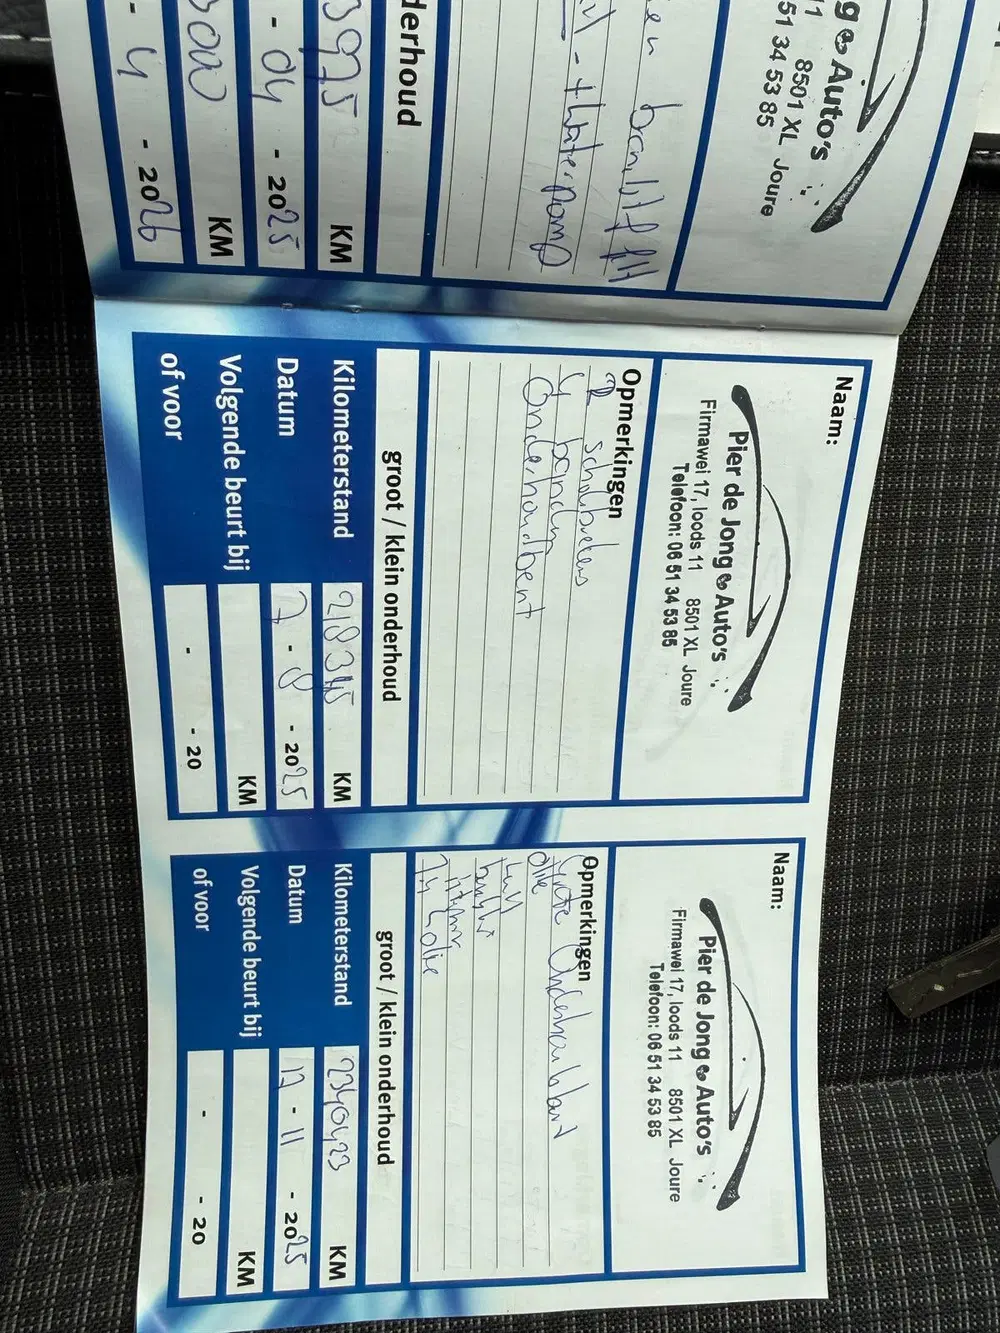 g Auto's
11 8501 XL Joure
51 34 53 85
en
+ Waterpomp
derhoud
3975 KM
- 04 - 2025
KM
- 4 - 2026
Naam:
Pier de Jong Auto's
Firmawei 17, loods 11 8501 XL Joure
Telefoon: 06 51 34 53 85
Opmerkingen
2 schokbrekers
4 banden
Onderhoudbeurt
groot / klein onderhoud
Kilometerstand 218345 KM
Datum 7 - 8 - 2025
Volgende beurt bij KM
of voor - - 20
Naam:
Pier de Jong Auto's
Firmawei 17, loods 11 8501 XL Joure
Telefoon: 06 51 34 53 85
Opmerkingen
Grote Onderhoudbeurt
olie
groot / klein onderhoud
Kilometerstand 2340423 KM
Datum 12 - 11 - 2025
Volgende beurt bij KM
of voor - - 20